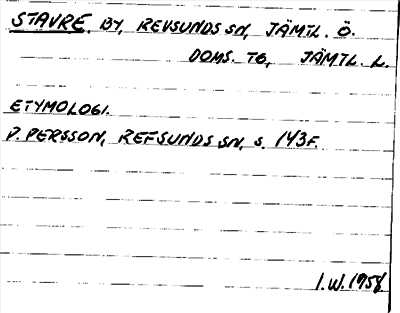 STAVRE. BY, REVSUNDS SN, JÄMTL. Ö.
DOMS. TG, JÄMTL. L.
ETYMOLOGI.
P. PERSSON, REFSUNDS SN, S. 143F.
I.W. 1958